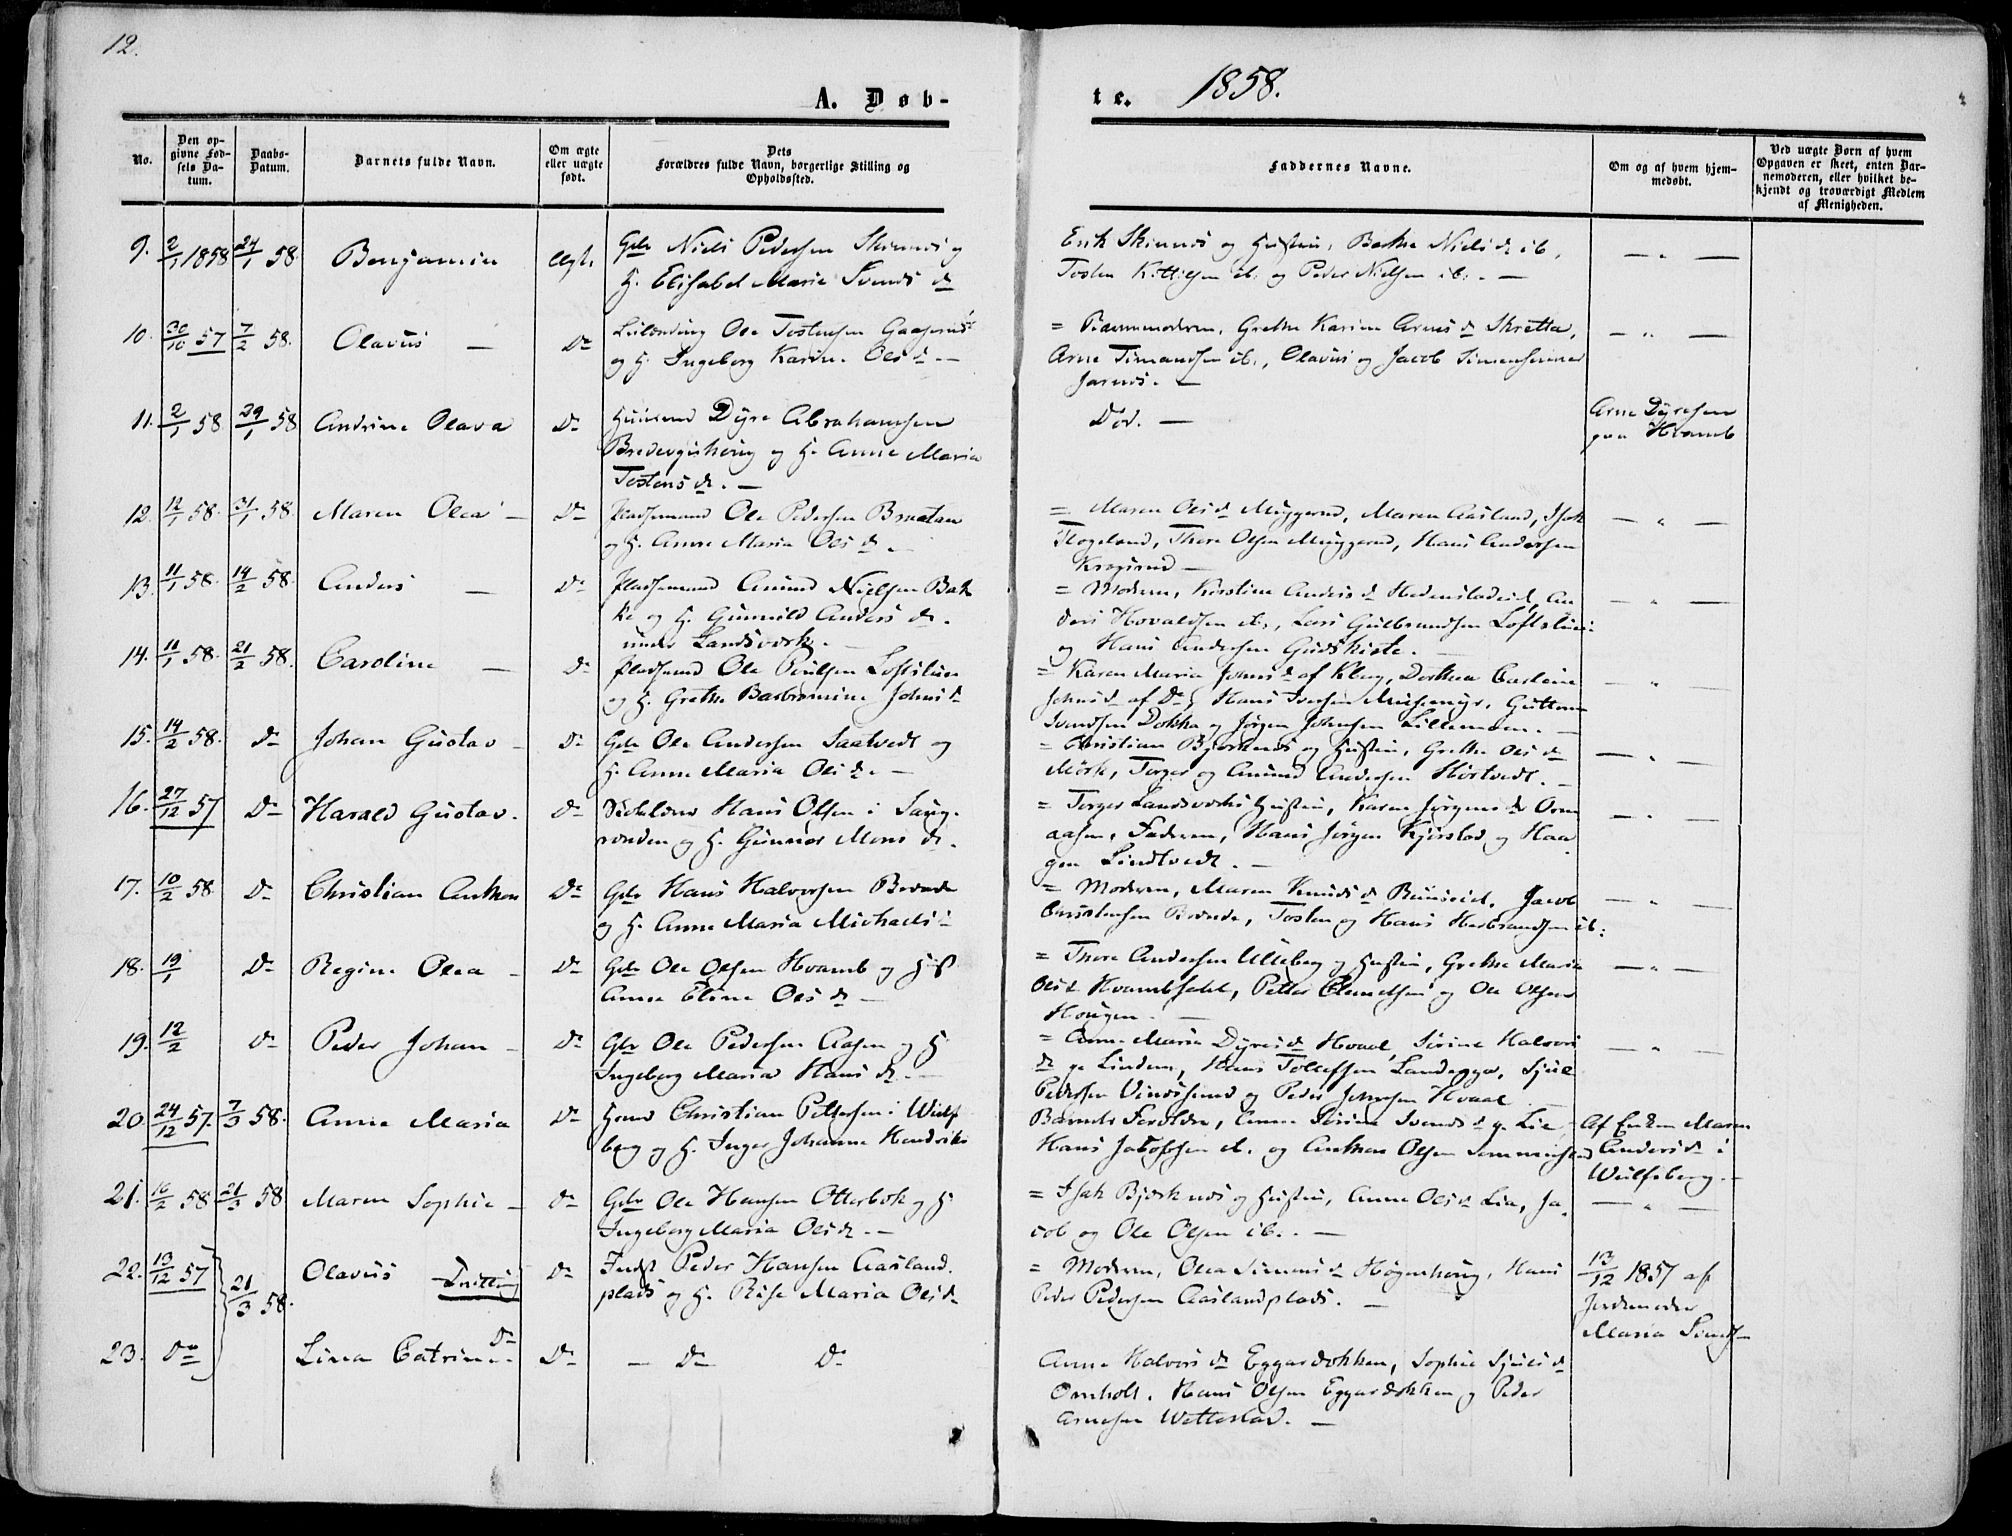 12.
A. Døb-
te. 1858.
No.
Den op-
givne Fød-
sels Da-
tum.
Daabs-
Datum.
Barnets fulde Navn.
Om ægte
eller uægte
født.
Dets
Forældres fulde Navn, borgerlige Stilling og
Opholdssted.
Faddernes Navne.
Om og af hvem hjem-
medøbt.
Ved uægte Børn af hvem
Opgaven er skeet, enten Bar-
nemoderen, eller hvilket be-
kjendt og troværdigt Medlem
af Menigheden.
9. 2/1 1858 24/1 58. Benjamin Ægt. Gbr Niels Pedersen Skinnes og
H. Elisabet Marie Svends D
Erik Skinnes og Hustru, Berthe Niels D ib,
Tosten Kittilsen ib. og Peder Nielsen ib. —
10. 30/10 57 7/2 58. Olavus — Do Leilænding Ole Tostensen
og H. Ingeborg Karine Ols D. —
= Barnemoderen, Grethe Karine Arnes D Skretta,
Arne Simensen ib., Olavus og Jacob
Jarnes. —
11. 2/1 58 29/1 58 Andrine Olava Do Huusmd Dyre Abrahamsen
og H. Anne Maria
Tostens D. —
Død. —
Arne Dyresen
paa Hvamb
12. 12/1 58. 31/1 58. Maren Olea — Do Pladsemand Ole Pedersen Braatan
og H. Anne Maria Ols D. —
= Maren Ols D Muggerud, Maren Aasland, Isak
Flogeland, Thore Olsen Muggerud, Hans Andersen
—
13. 11/1 58. 14/2 58. Anders — Do Pladsemand Amund Nielsen Bak
ke og H. Gunnild Anders D.
under Landsværk. —
= Moderen, Kirstine Anders D Hedenstadeid, An
ders Hovaldsen ib., Lars Gulbrandsen Loftstuen
og Hans Andersen Gudskiste. —
14. 11/1 58. 21/2 58. Caroline — Do Pladsemd Ole Poulsen Loftstuen
og H. Grethe Johns D
= Karen Maria Johns D af Kbrg, Dorthea Carline
Johns D af Do, Hans Iversen Guttorm
Svendsen Dokka og Jørgen Johnsen Lillemoen. —
15. 14/2 58. Do Johan Gustav — Do Gbr Ole Andersen Saatvedt og
H. Anne Maria Ols D. —
= Christian Bjørknes og Hustru, Grethe Ols D
Mörk, Torger og Amund Andersen Hostvedt. —
16. 27/12 57 Do Harald Gustav. Do Hans Olsen i Saug-
renden og H. Gunnor Mons D.
= Torger Landsværks Hustru, Karen Jørgens D Orm
aasen, Faderen, Hans Jörgen Kjörstad og Haa
gen Lindtvedt. —
17. 10/2 58 Do Christian Anthon Do Gbr Hans Halvorsen Brænde
og H. Anne Maria Michaels D
= Moderen, Maren Knuds D Jacob
Christensen Brænde, Tosten og Hans Herbrandsen ib.
18. 19/1 Do Regine Olea — Do Gbr Ole Olsen Hvamb og H
Anne Eline Ols D —
= Thore Andersen Ulleberg og Hustru, Grethe Maria
Ols D Hvambsald, Petter Clemetsen og Ole Olsen
Hougen. —
19. 12/2 Do Peder Johan — Do Gbr Ole Pedersen Aasen og H
Ingeborg Maria Hans D. —
= Anne Maria Dyres D Hvaal, Sørine Halvors
D p. Linden, Hans Tollefsen Landeggo, Sjul
Pedersen Vindsrud og Peder Johnsen Hvaal
20. 24/12 57. 7/3 58. Anne Maria Do Hmd Christian Pettersen i Wulfs
berg og H. Inger Johanne Hendriks
Barnets Forældre, Anne Sørine Svends D p. Lie
Hans Jakobsen ib. og Anthon Olsen
Af Enken Maren
Anders D i
Wulfsberg. —
21. 16/2 58 21/3 58 Maren Sophie — Do Gbr Ole Hansen Otterbek og H
Ingeborg Maria Ols D. —
= Isak Bjørknes og Hustru, Anne Ols D Lia, Ja
cob og Ole Olsen ib. —
22. 13/12 57 21/3 58. Olavus Tvilling Do Indst Peder Hansen Aasland
plads og H. Rise Maria Ols D.
= Moderen, Olea Simens D Högenhoug, Hans
Peder Pedersen Aaslandplads. —
13/12 1857 af
Jordmoder
Maria
23. Do Lina Catrine. Do Do — Do Do
Anne Halvors D Eggardokken, Sophie Sjuls D
Omholt. Hans Olsen Eggardokken og Peder
Arnesen Wettestad. —